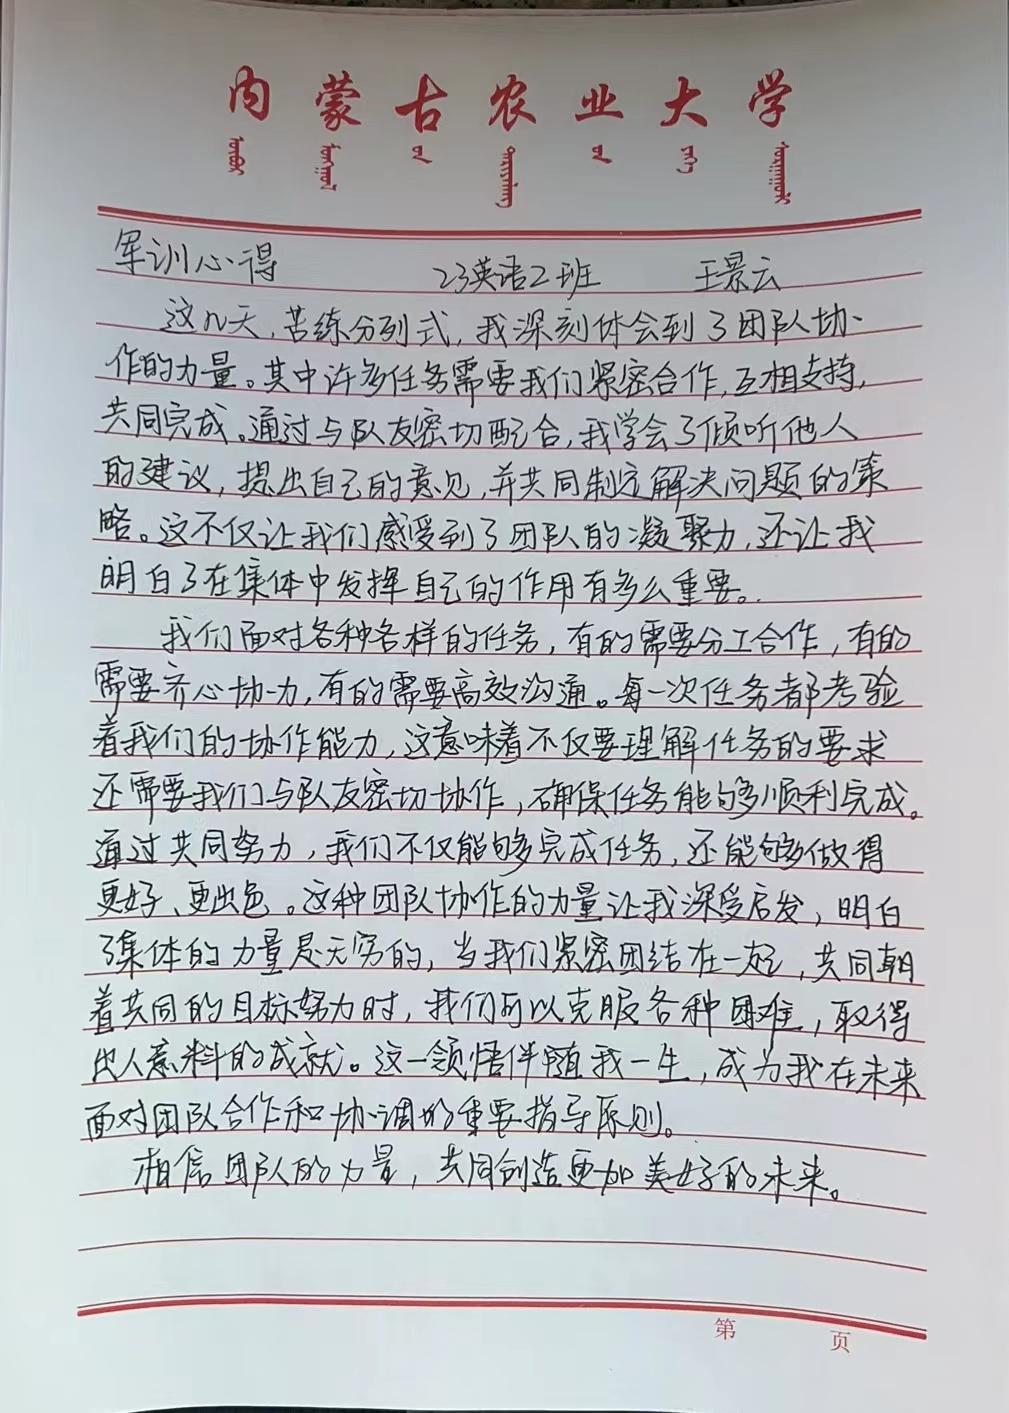 内蒙古农业大学
军训心得 23英语2班 王景云
这几天,苦练分列式,我深刻体会到了团队协
作的力量。其中许多任务需要我们紧密合作,互相支持,
共同完成。通过与队友密切配合,我学会了倾听他人
的建议,提出自己的意见,并共同制定解决问题的策
略。这不仅让我们感受到了团队的凝聚力,还让我
明白了在集体中发挥自己的作用有多么重要。
我们面对各种各样的任务,有的需要分工合作,有的
需要齐心协力,有的需要高效沟通。每一次任务都考验
着我们的协作能力,这意味着不仅要理解任务的要求
还需要我们与队友密切协作,确保任务能够顺利完成。
通过共同努力,我们不仅能够完成任务,还能够做得
更好、更出色。这种团队协作的力量让我深受启发,明白
了集体的力量是无穷的,当我们紧密团结在一起,共同朝
着共同的目标努力时,我们可以克服各种困难,取得
出人意料的成就。这一领悟伴随我一生,成为我在未来
面对团队合作和协调的重要指导原则。
相信团队的力量,共同创造更加美好的未来。
第 页